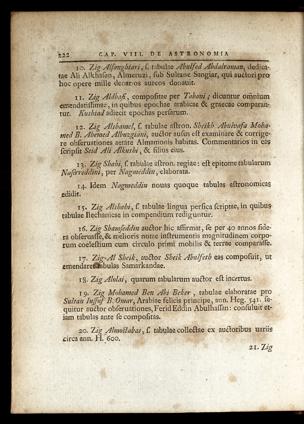 222 CAP. VIII. DE ASTRONOMIA
10. Zig Alsanghiari, s. tabulae Abulfed Abdalroman, dedica-
tae Ali Alkhasan, Almeruzi, sub Sultano Sangiar, qui auctori pro
hoc opere mille decem-os aureos donauit.
11. Zig Aldhaß, compositae per Tabani; dicuntur omnium
emendatissimae, in quibus epochae arabicae & graecae comparan-
tur. Kushiad adiecit epochas persarum.
12. Zig Alshamel, s. tabulae astron. Sheikh Abulvafa Moha-
med B. Ahemed Albuzgiani, auctor ausus est examinare & corrige-
re obseruationes aetate Almamonis habitas. Commentarios in eas
scripsit Seid Ali Alkushi, & filius eius.
13. Zig Shahi, s. tabulae astron. regiae: est epitome tabularum
Nasirreddini, per Nagmeddin, elaborata.
14. Idem Nagmeddin nouas quoque tabulas astronomicas
edidit.
15. Zig Alshahi, s. tabulae lingua persica scriptae, in quibus
tabulae Ilechanicae in compendium rediguntur.
16. Zig Shamseddin auctor hic affirmat, se per 40 annos side-
ra obseruasse, & melioris notae instrumentis magnitudinem corpo-
rum coelestium cum circulo primi mobilis & terrae comparasse.
17. Zig-Al Sheik, auctor Sheik Abulfath eas composuit, ut
emendaret tabulas Samarkandae.
18. Zig Alalai, quarum tabularum auctor est incertus.
19. Zig Mohamed Ben Abi Beker, tabulae elaboratae pro
Sultan Iussuf B. Omar, Arabiae felicis principe, ann. Heg. 541. se-
quitur auctor obseruationes, Ferid Eddin Abulhassan: consuluit et-
iam tabulas ante se compositas.
20. Zig Almoctabas, s. tabulae collectae ex auctoribus uariis
circa ann. H. 600.
21. Zig